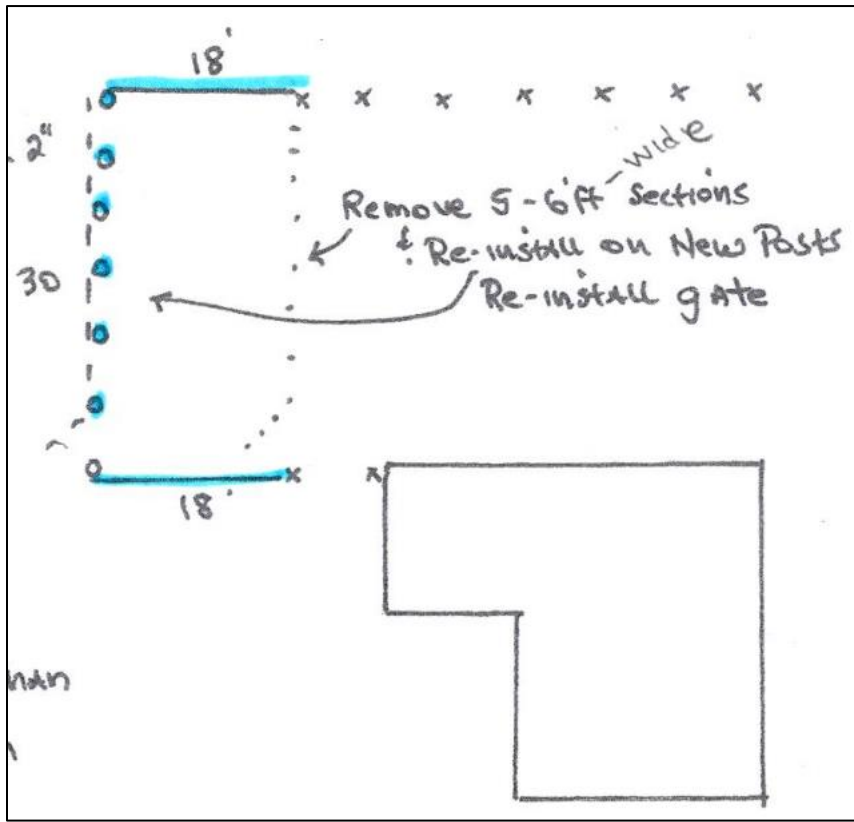 18'
2"
wide
Remove 5-6ft sections
& Re-install on New Posts
30
Re-install gate
18'